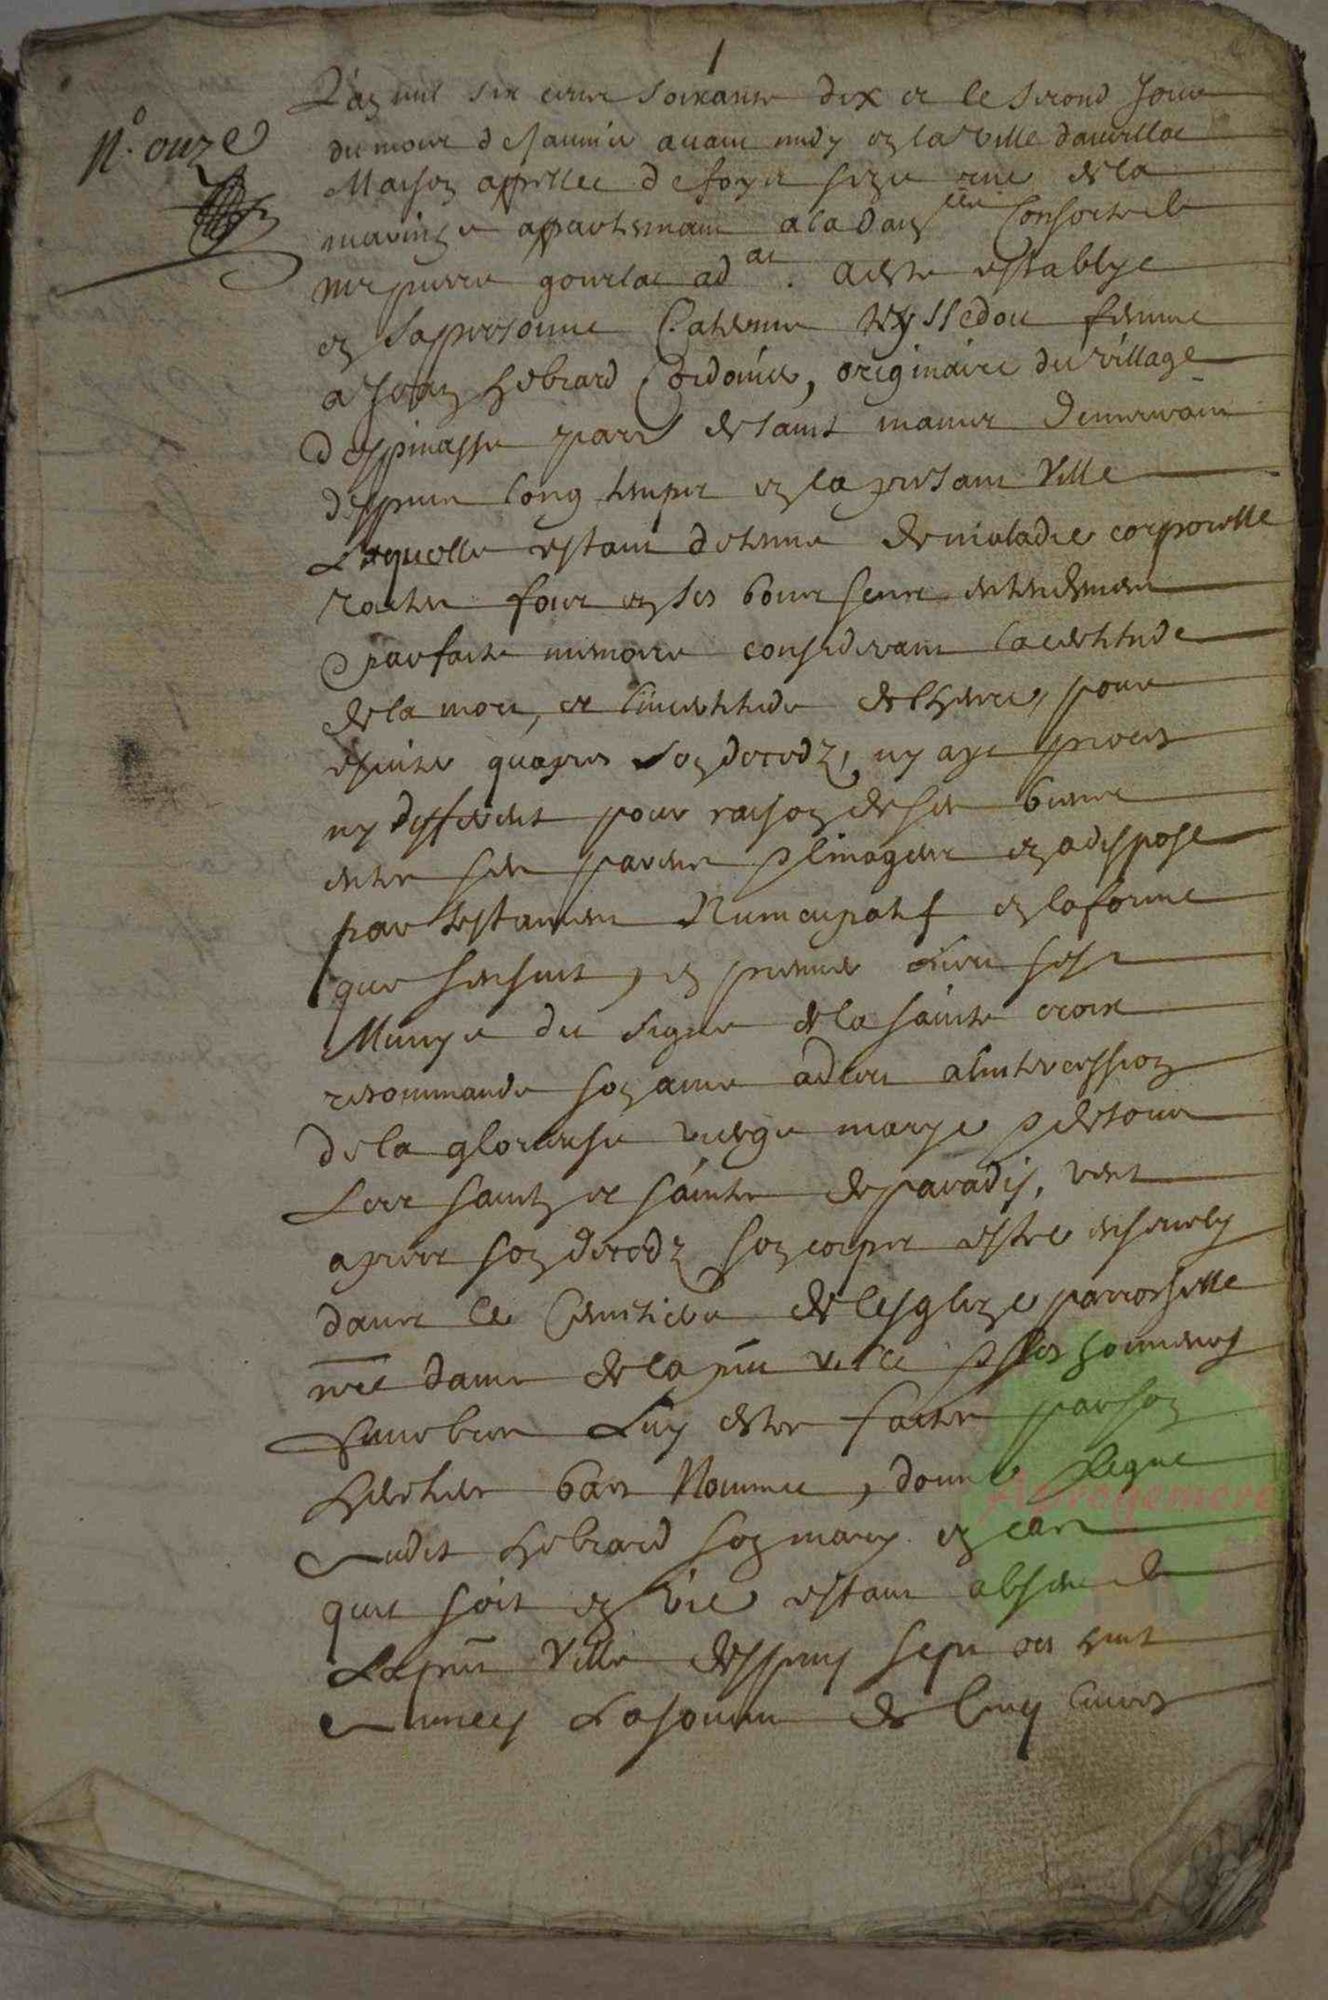 1
N.° onze
L'an mil six cens soixante dix et le segond jour
du mois de janvier avant midy en la ville d'aurillac
Maison appellee de foyer size rue de la
marinye appartenant a la dam.lle Consorte de
m.e pierre gourlat ad.at. a este establye
en sa personne Catherine Teyssedou femme
a Jean hebrard Cordonier, originaire du village
despinasse par.e de saint mamet demeurant
despuis long temps en la presant Ville
Laquelle estant detenue de maladie corporelle
toutes fois en ses bons sens entendement
& parfaite memoire considerant la certitude
de la mort, et lincertitude de lheure, pour
esviter quapres son decedz, ny aye proces
ny different pour raison de ses biens
entre ses parens & linagers en a dispose
par testament Nuncupatif en la forme
que sensuit, en premier Lieu sest
Munye du signe de la sainte croix
recommande son ame a dieu a lintercession
de la glorieuse vierge marye & de tous
Les saintz et saintes de paradis, veut
apres son decedz son corps estre ensevely
dans le Cimetiere de lesglize parrochielle
n.re dame de la p.nt ville & ses honneurs
funebres Luy estre faites par son
heritier bas Nomme, donne & legue
audit hebrard son mary en cas
quil soit en vie estant absent de
La p.nt Ville despuis sept ou huit
annees La somme de Cinq livres
Auvregemere